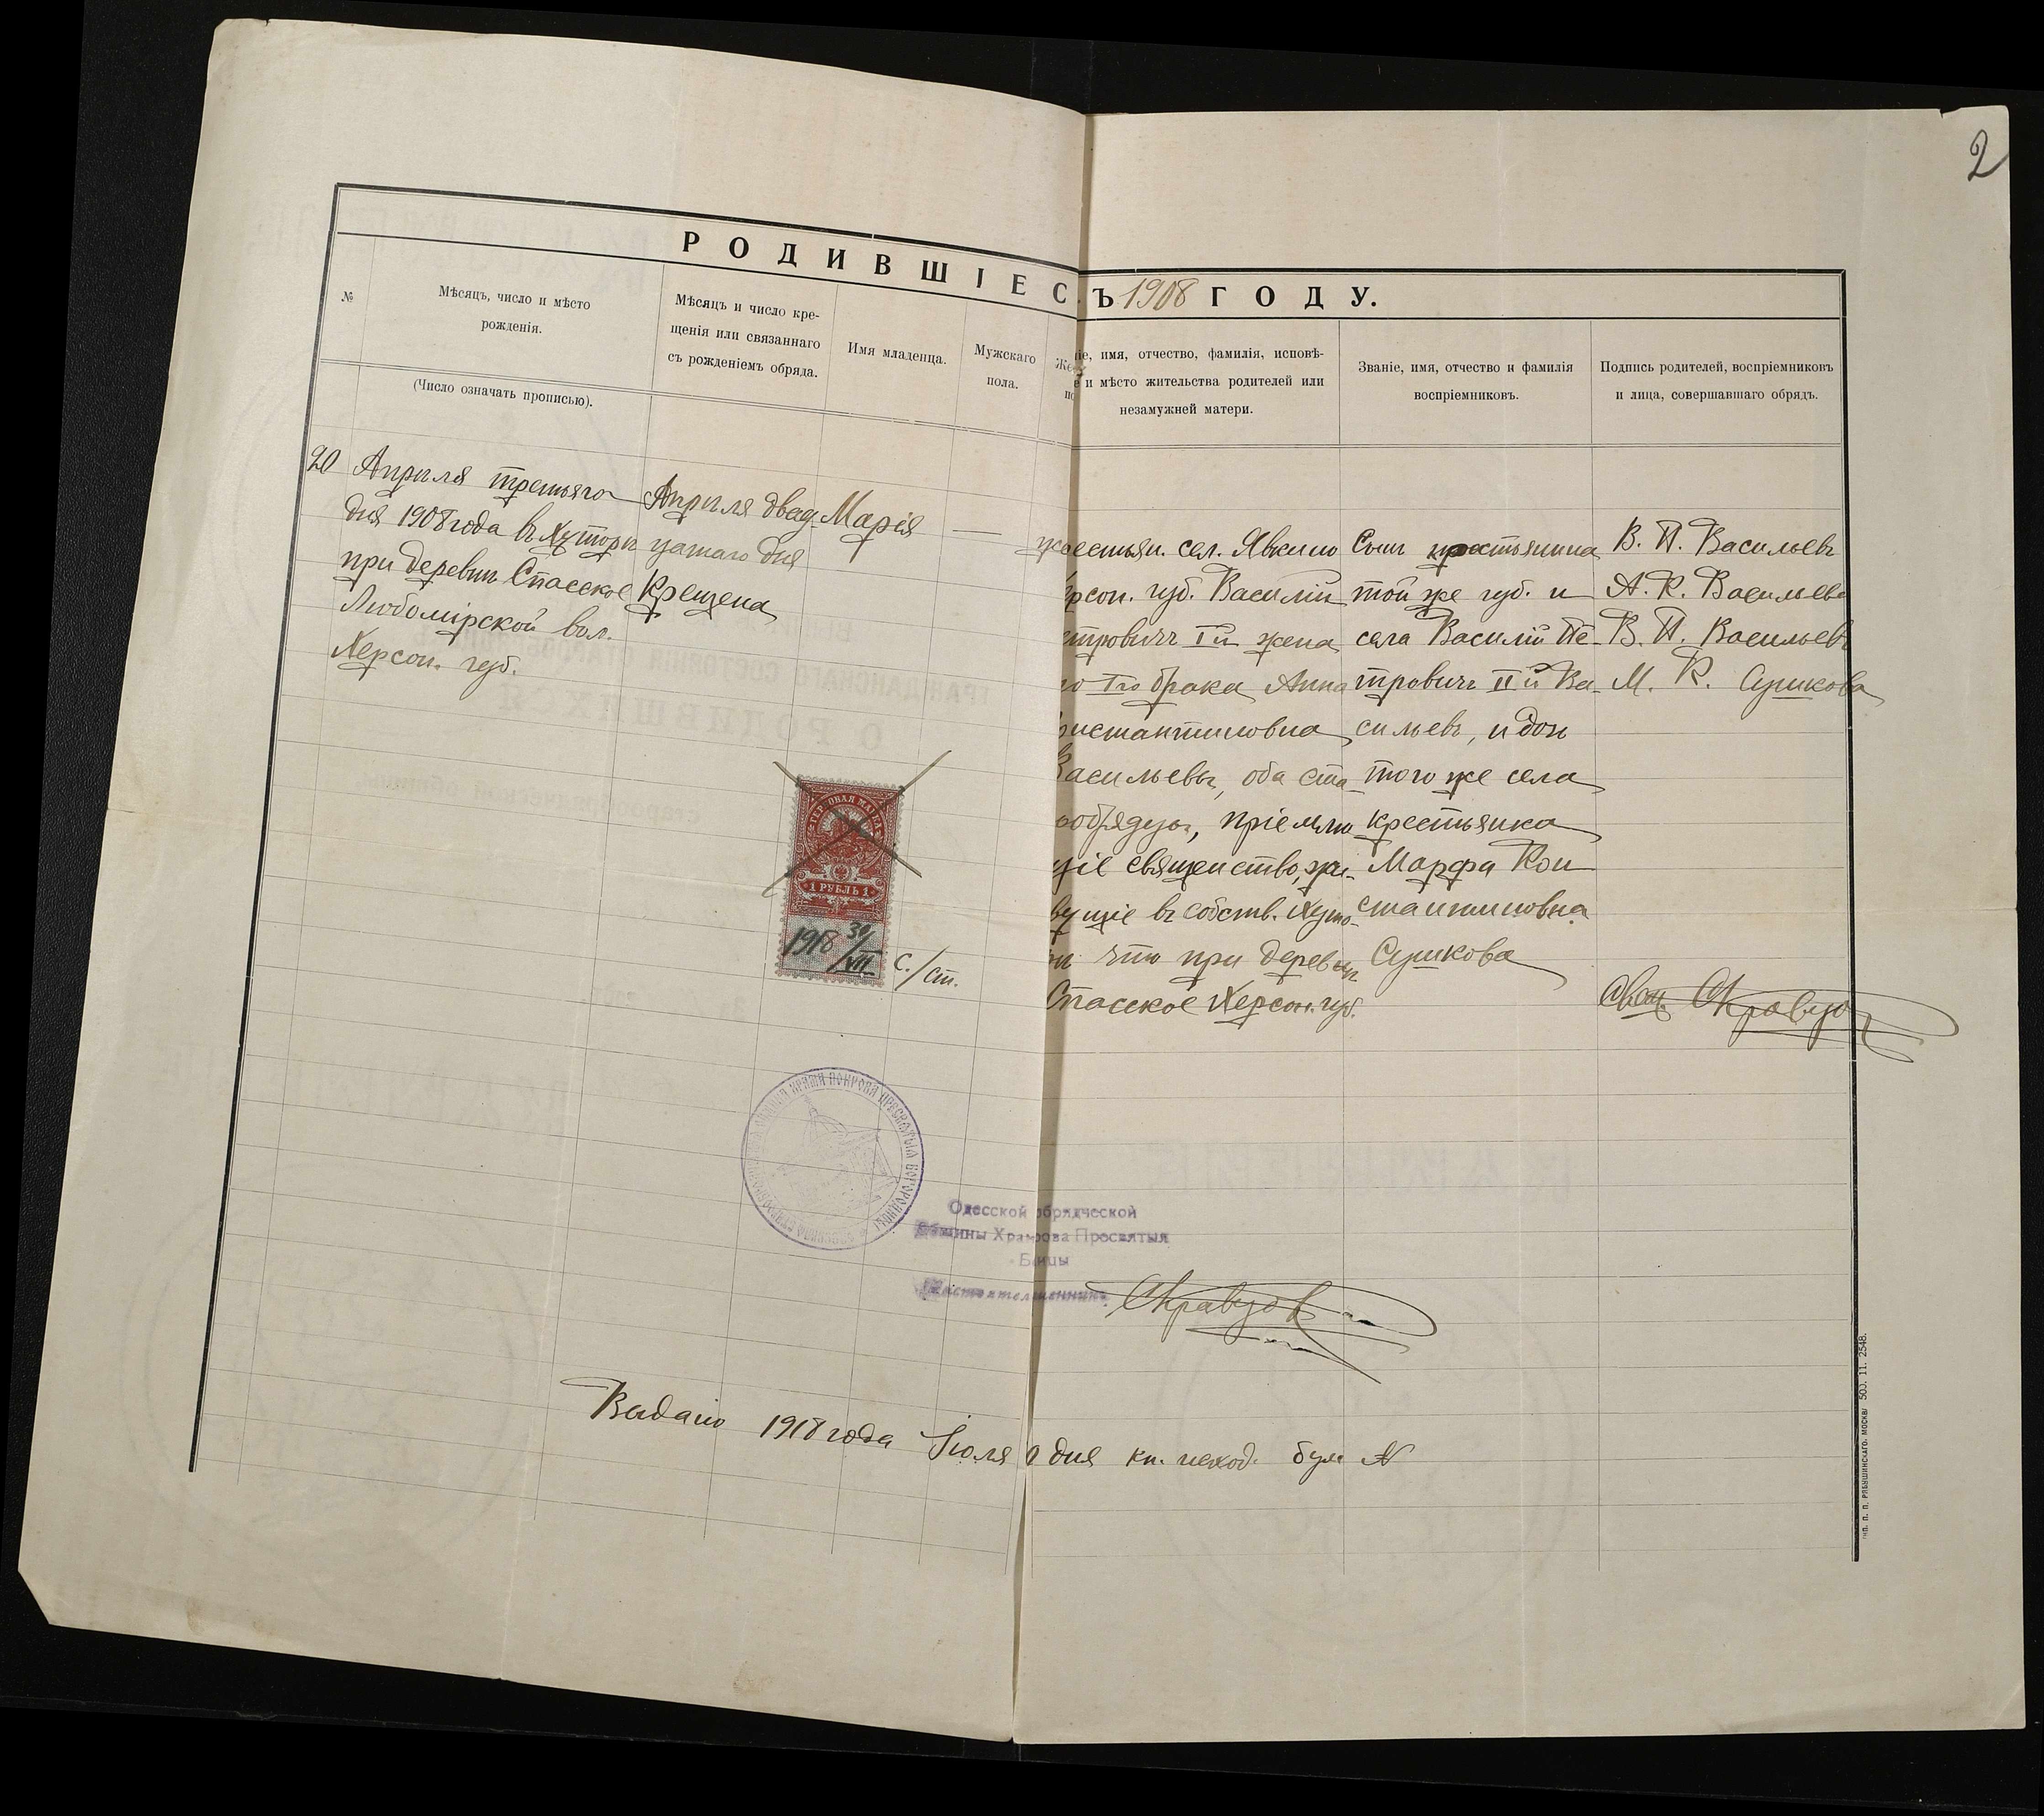 2
РОДИВШІЕС
Ъ 1908 ГОДУ.
№
Мѣсяцъ, число и мѣсто
рожденія.
(Число означать прописью).
Мѣсяцъ и число кре-
щенія или связаннаго
съ рожденіемъ обряда.
Имя младенца.
Мужскаго
пола.
іе, имя, отчество, фамилія, исповѣ-
е и мѣсто жительства родителей или
незамужней матери.
Званіе, имя, отчество и фамилія
воспріемниковъ.
Подпись родителей, воспріемниковъ
и лица, совершавшаго обрядъ.
20
Апрѣля третьяго
дня 1908 года въ Хуторѣ
при деревнѣ Спасское
Любомірской вол.
Херсон. губ.
Апрѣля двад-
цатаго дня
Крещена
Марія
—
крестьян. сел. Явкино
рсон. губ. Василій
етровичъ Iй жена
го Iго брака Анна
онстантиновна
Васильевы, оба ста-
ообрядцы, пріемлю
щіе священство, жи-
вущіе въ собств. Хуто-
рѣ что при деревнѣ
Спасское Херсон. губ.
Сынъ крестьянина
той же губ. и
села Василій Пе-
тровичъ IIй Ва-
сильевъ, и дочь
того же села
крестьянка
Марфа Кон
стантиновна
Сушкова
В. П. Васильевъ
А. К. Васильева
В. П. Васильевъ
М. К. Сушкова
Свящ. С Кравцов
ГЕРБОВАЯ МАРКА
1 РУБЛЬ 1
1918 30/VII
С./ст.
ХРАМА ПОКРОВА ПРЕСВЯТЫЯ БОГОРОДИЦЫ
Одесской обрядческой
Общины Храмрова Пресвятыя
Б ицы
С Кравцов
Выдано 1918 года Іюля 0 дня кн. исход. бум №
ТИП. П. П. РЯБУШИНСКАГО. МОСКВА 500. 11. 2548.